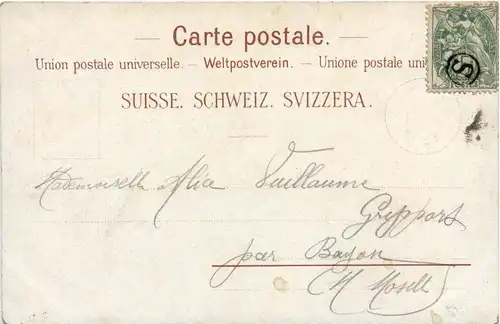 Carte postale.
Union postale universelle. — Weltpostverein. — Unione postale uni
SUISSE. SCHWEIZ. SVIZZERA.
Mademoiselle Alia Vuillaume
Gripport
par Bayon
(M Moselle)
S